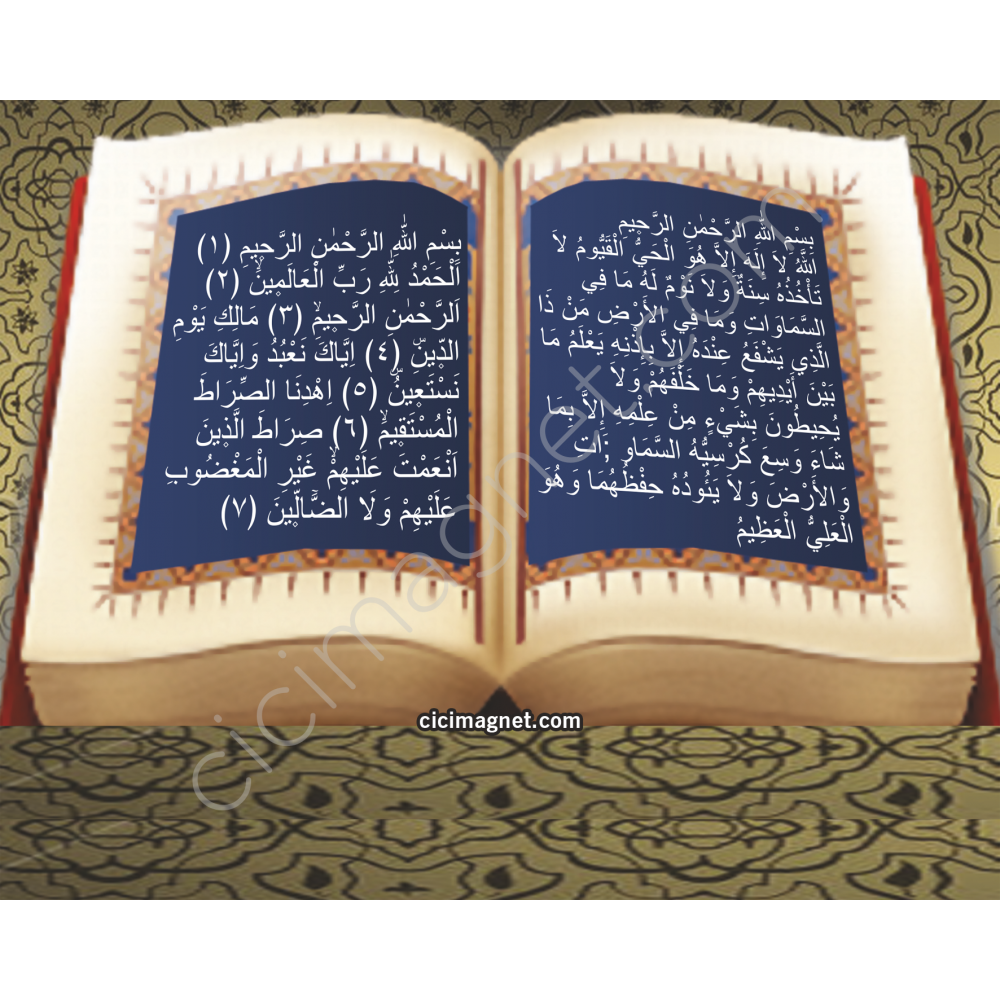 بِسْمِ اللهِ الرَّحْمٰنِ الرَّحِيمِ
اللهُ لاَ إِلَهَ إِلاَّ هُوَ الْحَيُّ الْقَيُّومُ لاَ
تَأْخُذُهُ سِنَةٌ وَلاَ نَوْمٌ لَهُ مَا فِي
السَّمَاوَات وَمَا فِي الأَرْضِ مَنْ ذَا
الَّذِي يَشْفَعُ عِنْدَهُ إِلاَّ بِإِذْنِهِ يَعْلَمُ مَا
بَيْنَ أَيْدِيهِمْ وما خَلْفَهُمْ وَلاَ
يُحِيطُونَ بِشَيْءٍ مِنْ عِلْمِهِ إِلاَّ بِمَا
شَاءَ وَسِعَ كُرْسِيُّهُ السَّمَاوَ ;ات
والأَرْضَ وَلاَ يَئُودُهُ حِفْظُهُمَا وَهُوَ
الْعَلِيُّ الْعَظِيمُ
بِسْمِ اللّٰهِ الرَّحْمٰنِ الرَّحِيمِ (١)
اَلْحَمْدُ لِلّٰهِ رَبِّ الْعَالَمِينَۙ (٢)
اَلرَّحْمٰنِ الرَّحِيمِۙ (٣) مَالِكِ يَوْمِ
الدّ۪ينِۜ (٤) اِيَّاكَ نَعْبُدُ وَاِيَّاكَ
نَسْتَعِينُۜ (٥) اِهْدِنَا الصِّرَاطَ
الْمُسْتَقِيمَۙ (٦) صِرَاطَ الَّذِينَ
اَنْعَمْتَ عَلَيْهِمْۙ غَيْرِ الْمَغْضُوبِ
عَلَيْهِمْ وَلَا الضَّٓالِّينَ (٧)
cicimagnet.com
cicimagnet.com